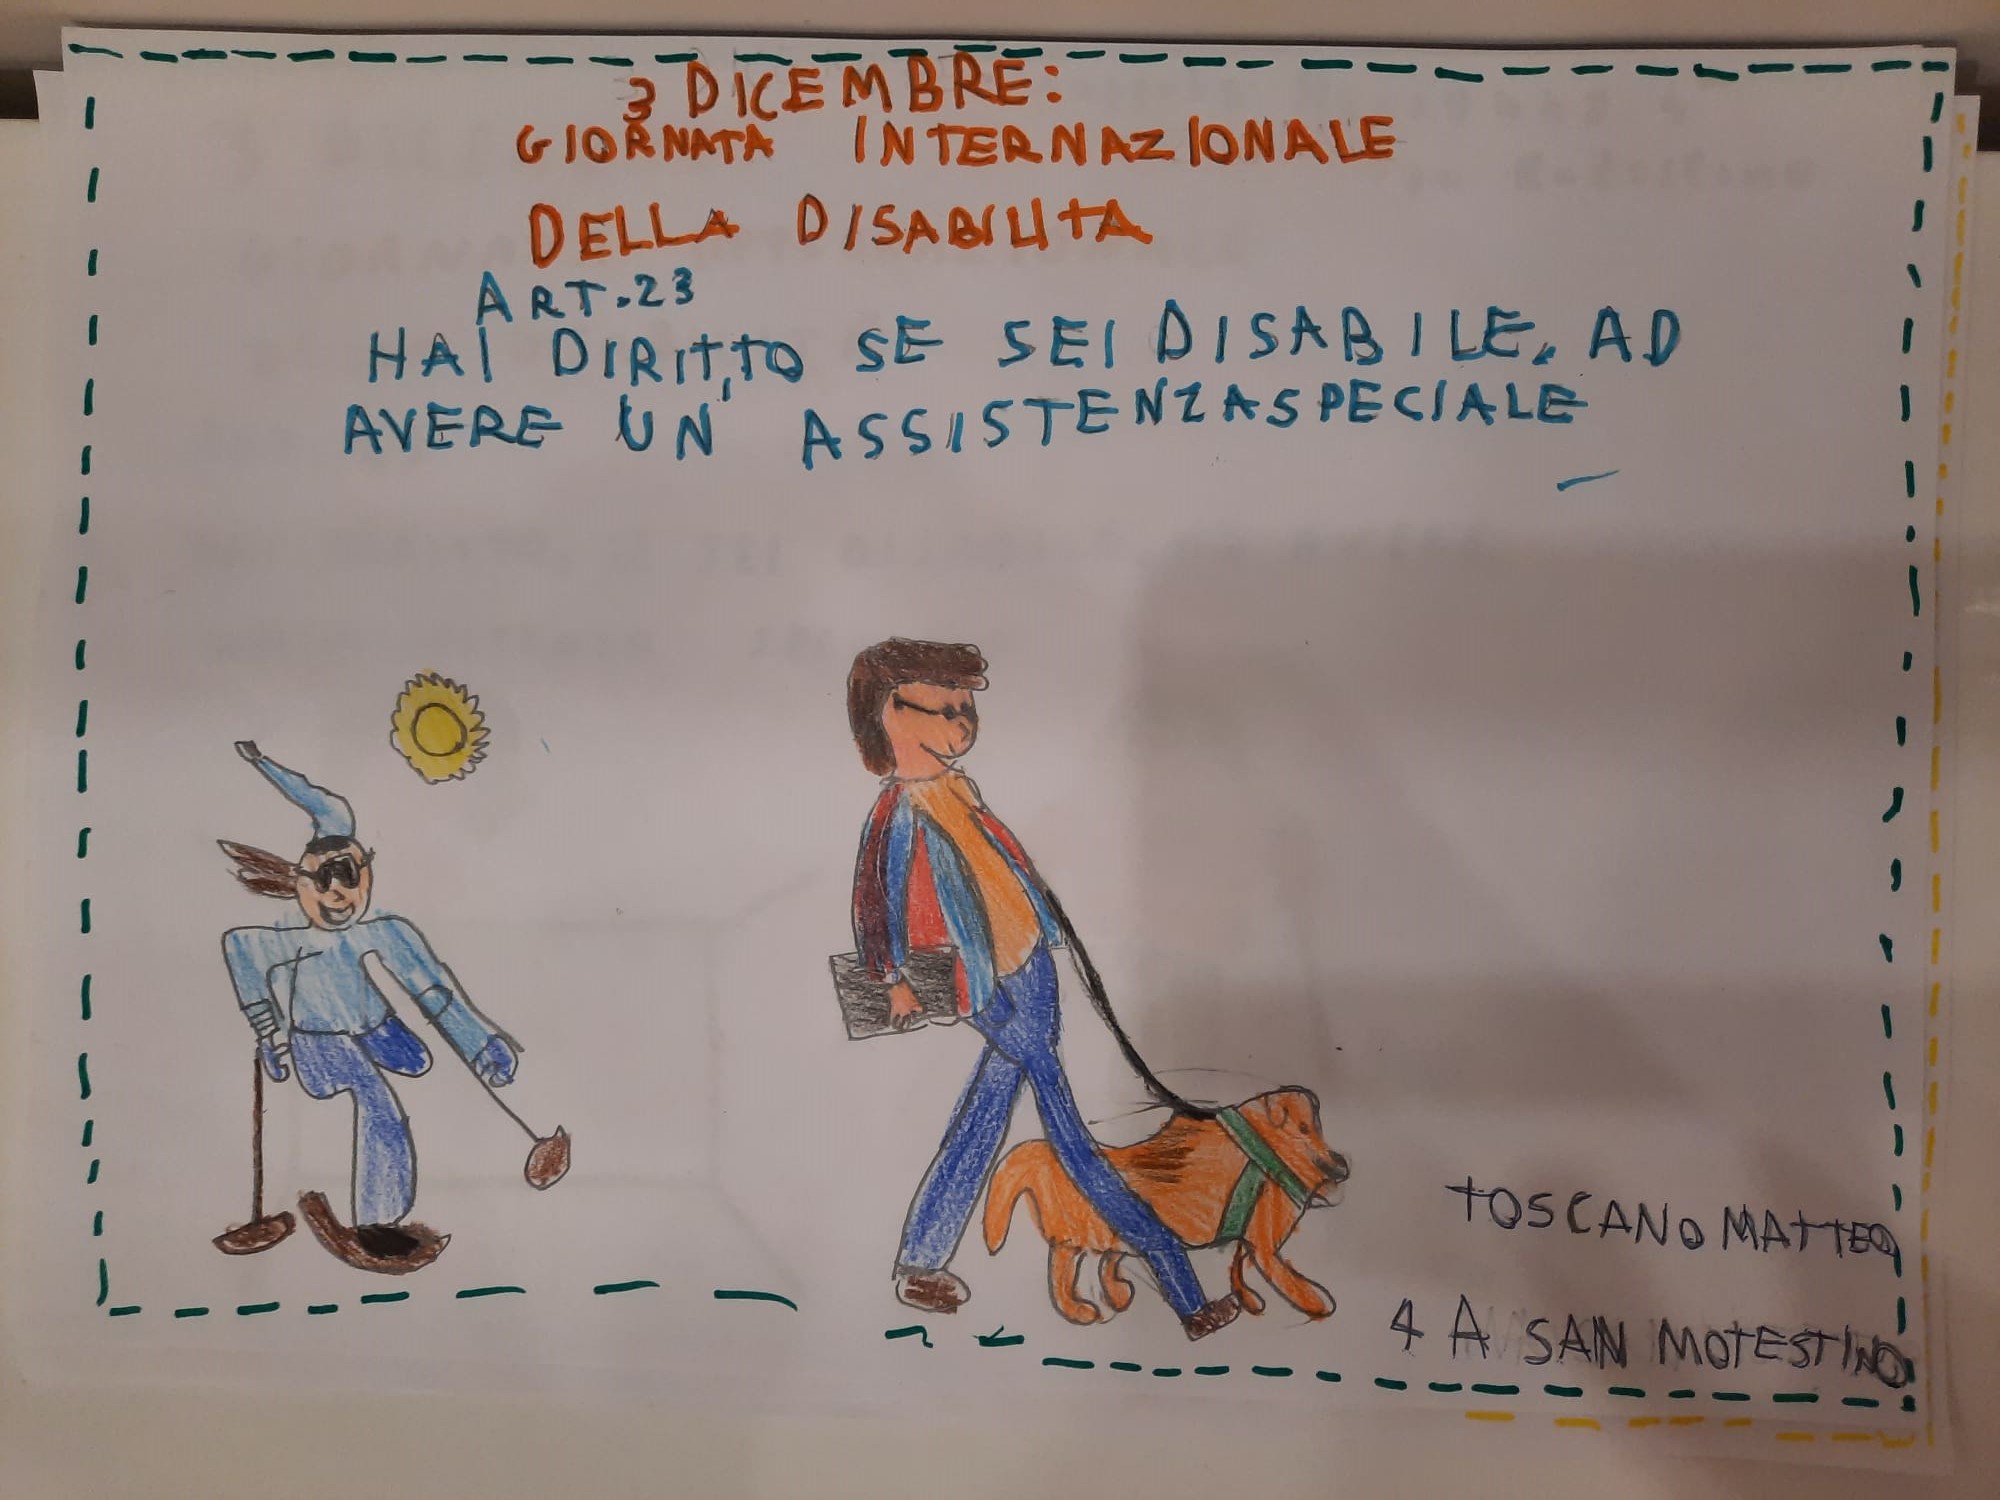 3 DICEMBRE:
GIORNATA INTERNAZIONALE
DELLA DISABILITA
ART.23
HAI DIRITTO SE SEI DISABILE, AD
AVERE UN' ASSISTENZASPECIALE
TOSCANO MATTEO
4 A SAN MOTESTINO